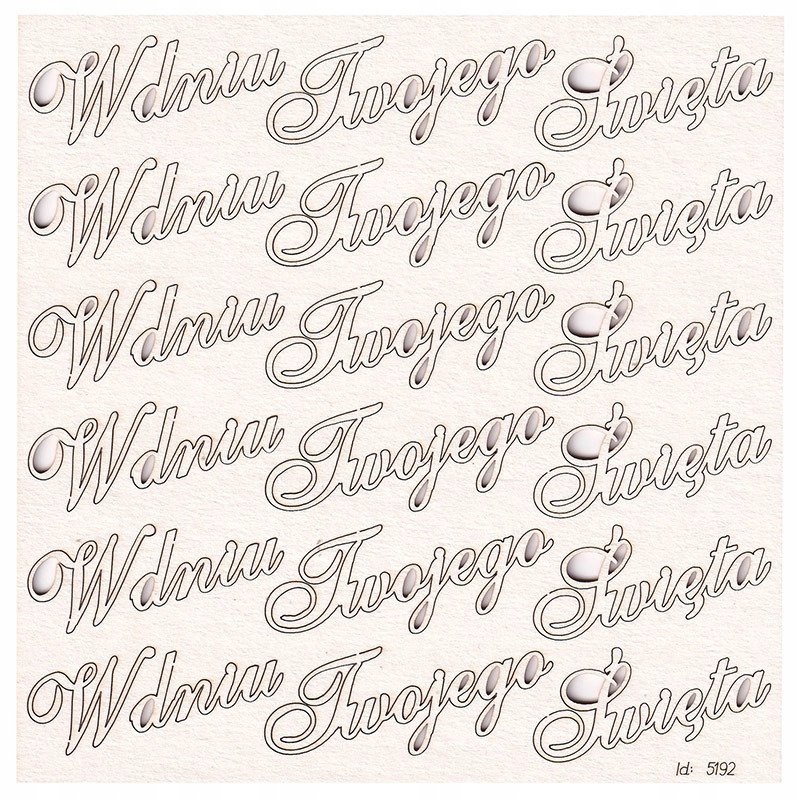 W dniu Twojego Święta
W dniu Twojego Święta
W dniu Twojego Święta
W dniu Twojego Święta
W dniu Twojego Święta
W dniu Twojego Święta
Id: 5192